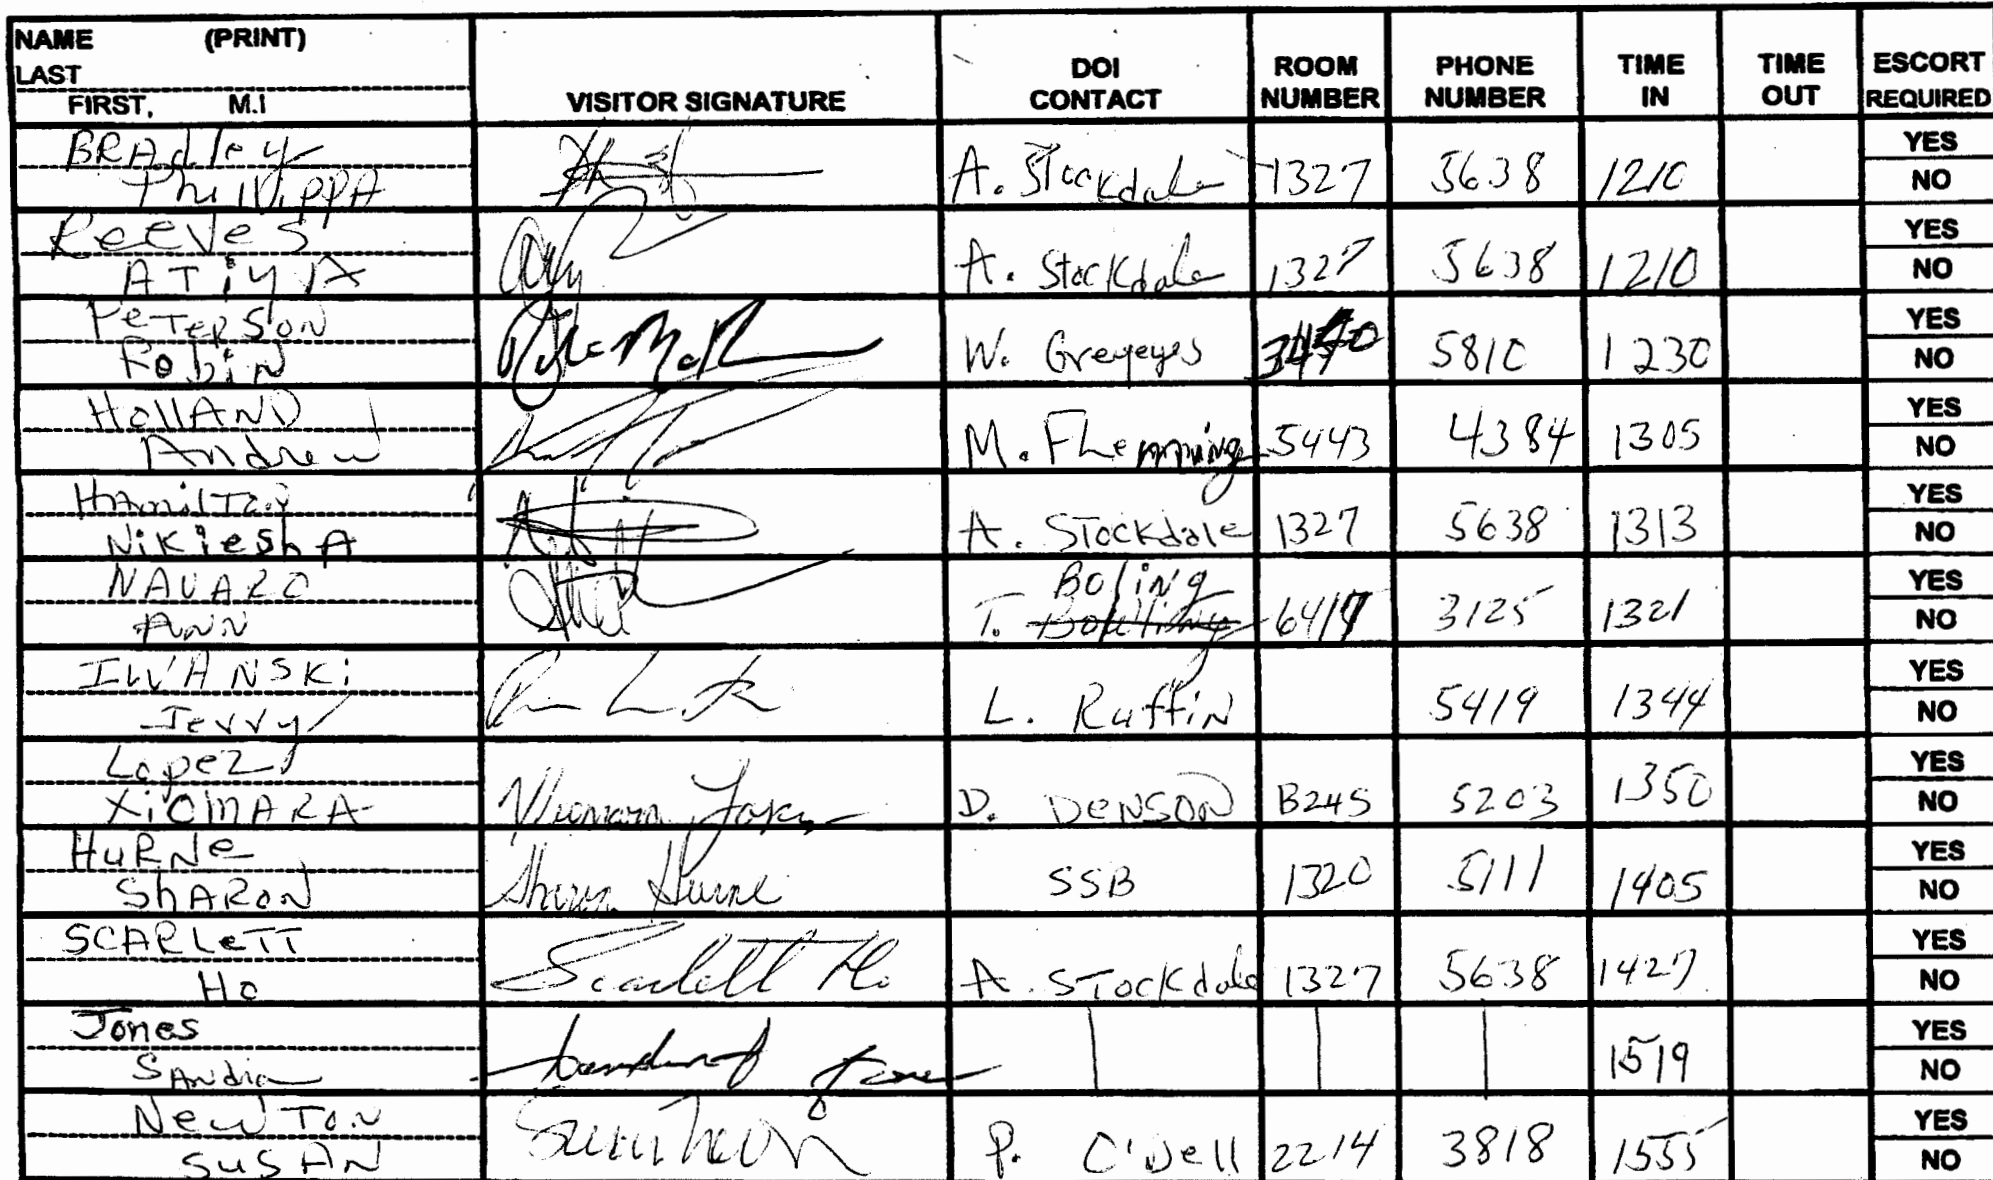 NAME (PRINT)
LAST
FIRST, M.I
VISITOR SIGNATURE
DOI CONTACT
ROOM NUMBER
PHONE NUMBER
TIME IN
TIME OUT
ESCORT REQUIRED
BRAdley
PhillippA A. Stockdale 1327 5638 1210 YES NO
Reeves
ATiyIA A. Stockdale 1327 5638 1210 YES NO
PeTeRSON
RobiN W. Greyeyes 5810 1230 YES NO
HollAND
Andrew M. FLemming 5443 4384 1305 YES NO
HAmilTon
NiKieshA A. STockdale 1327 5638 1313 YES NO
NAVARO
ANN T. Boling 3125 1321 YES NO
IWANSKi
Jerry L. RuffiN 5419 1344 YES NO
Lopez
XiOMARA D. DENSON B245 5203 1350 YES NO
HuRNe
ShARON Sharon Hurne SSB 1320 5111 1405 YES NO
SCARLeTT
Ho Scarlett Ho A. STockdale 1327 5638 1427 YES NO
Jones
SAndra 1519 YES NO
NewToN
SuSAN P. O'Dell 2214 3818 1555 YES NO